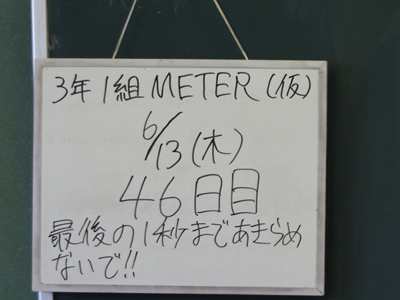 3年1組METER(仮)
6/13(木)
46日目
最後の1秒まであきらめ
ないで!!